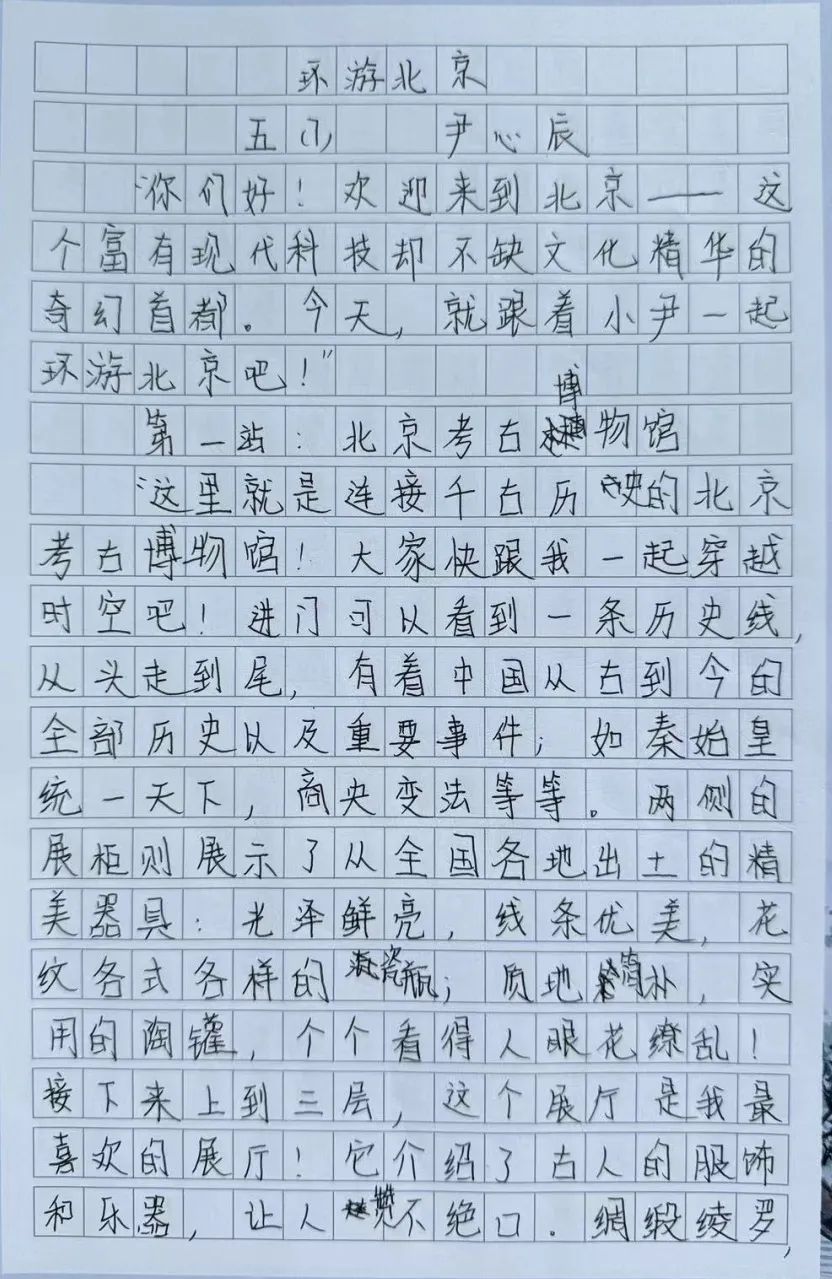 环游北京
五(1) 尹心辰
“你们好！欢迎来到北京——这
个富有现代科技却不缺文化精华的
奇幻首都。今天，就跟着小尹一起
环游北京吧！”
第一站：北京考古博物馆
“这里就是连接千古历史的北京
考古博物馆！大家快跟我一起穿越
时空吧！进门可以看到一条历史线，
从头走到尾，有着中国从古到今的
全部历史以及重要事件；如秦始皇
统一天下，商央变法等等。两侧的
展柜则展示了从全国各地出土的精
美器具：光泽鲜亮，线条优美，花
纹各式各样的瓷瓶；质地简朴，实
用的陶罐，个个看得人眼花缭乱！
接下来上到三层，这个展厅是我最
喜欢的展厅！它介绍了古人的服饰
和乐器，让人赞不绝口。绸缎绫罗，